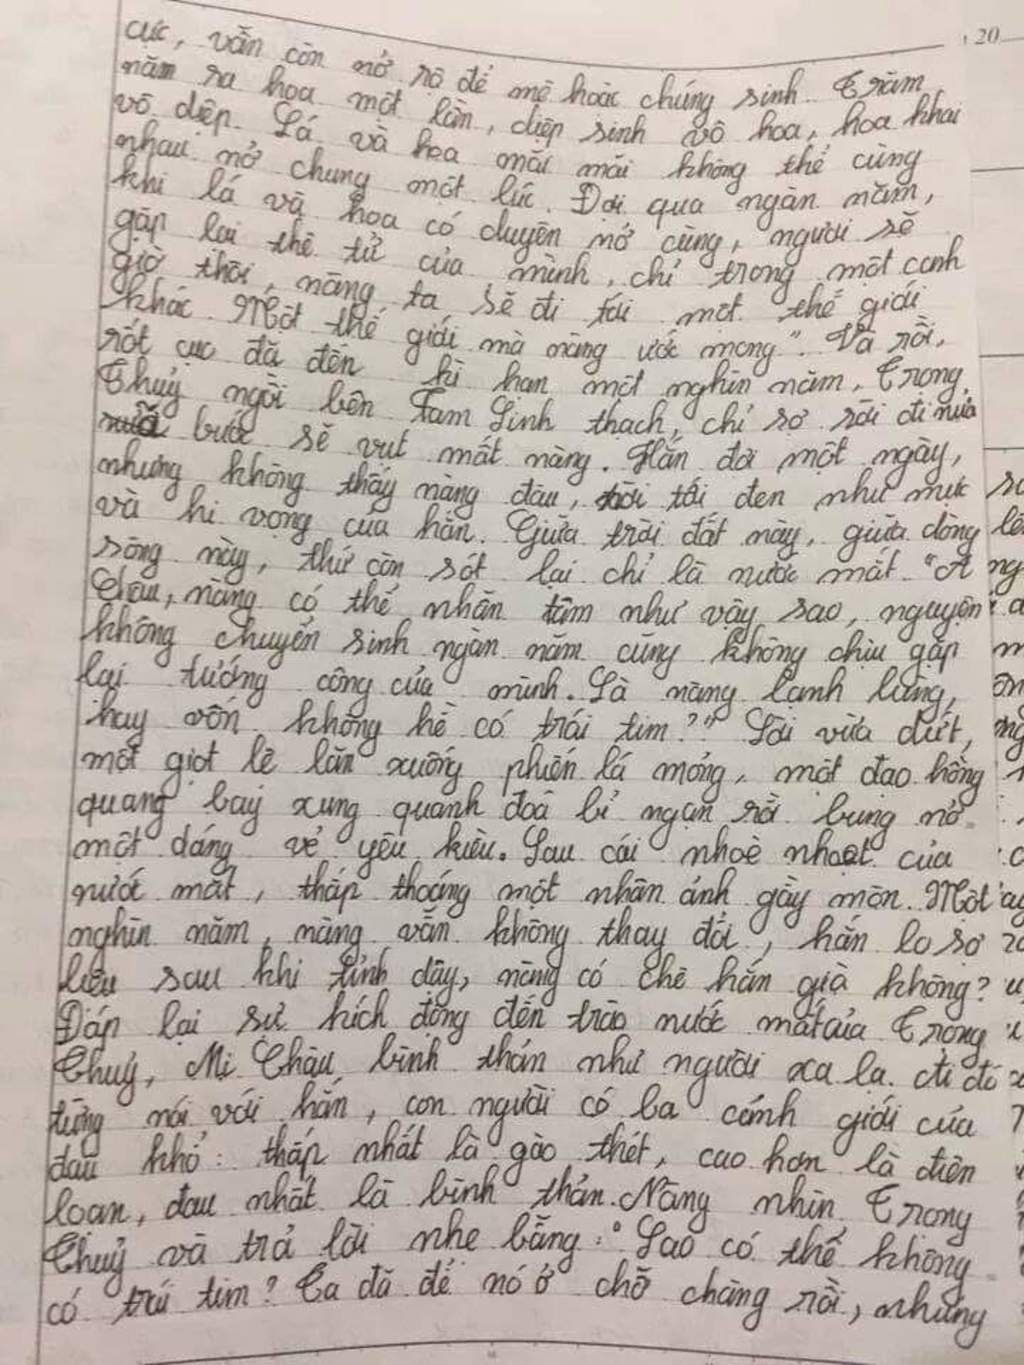 20
cực, vẫn còn nở rộ để mê hoặc chúng sinh. Trăm
năm ra hoa một lần, diệp sinh vô hoa, hoa khai
vô diệp. Lá và hoa mãi mãi không thể cùng
nhau nở chung một lúc. Đợi qua ngàn năm,
khi lá và hoa có duyên nở cùng, người sẽ
gặp lại thê tử của mình, chỉ trong một canh
giờ thôi, nàng ta sẽ đi tới một thế giới
khác. Một thế giới mà nàng ước mong". Và rồi,
rốt cục đã đến kì hạn một nghìn năm, Trọng
Thuỷ ngồi bên Tam Sinh thạch, chỉ sợ rời đi nửa
bước sẽ vụt mất nàng. Hắn đợi một ngày,
nhưng không thấy nàng đâu, trời tối đen như mực
và hi vọng của hắn. Giữa trời đất này, giữa dòng
sông này, thứ còn sót lại chỉ là nước mắt. "A
Châu, nàng có thể nhẫn tâm như vậy sao, nguyện
không chuyển sinh ngàn năm cũng không chịu gặp
lại tướng công của mình. Là nàng lạnh lùng,
hay vốn không hề có trái tim?" Lời vừa dứt,
một giọt lệ lăn xuống phiến lá mỏng, một đạo hồng
quang bay xung quanh đoá bỉ ngạn rồi bung nở
một dáng vẻ yêu kiều. Sau cái nhoè nhoẹt của
nước mắt, thấp thoáng một nhân ảnh gầy mòn. Một
nghìn năm, nàng vẫn không thay đổi, hắn lo sợ
liệu sau khi tỉnh dậy, nàng có chê hắn già không?
Đáp lại sự kích động đến trào nước mắt của Trọng
Thuỷ, Mị Châu bình thản như người xa lạ.
từng nói với hắn, con người có ba cảnh giới của
đau khổ: thấp nhất là gào thét, cao hơn là điên
loạn, đau nhất là bình thản. Nàng nhìn Trọng
Thuỷ và trả lời nhẹ bẫng: "Sao có thể không
có trái tim? Ta đã để nó ở chỗ chàng rồi, nhưng